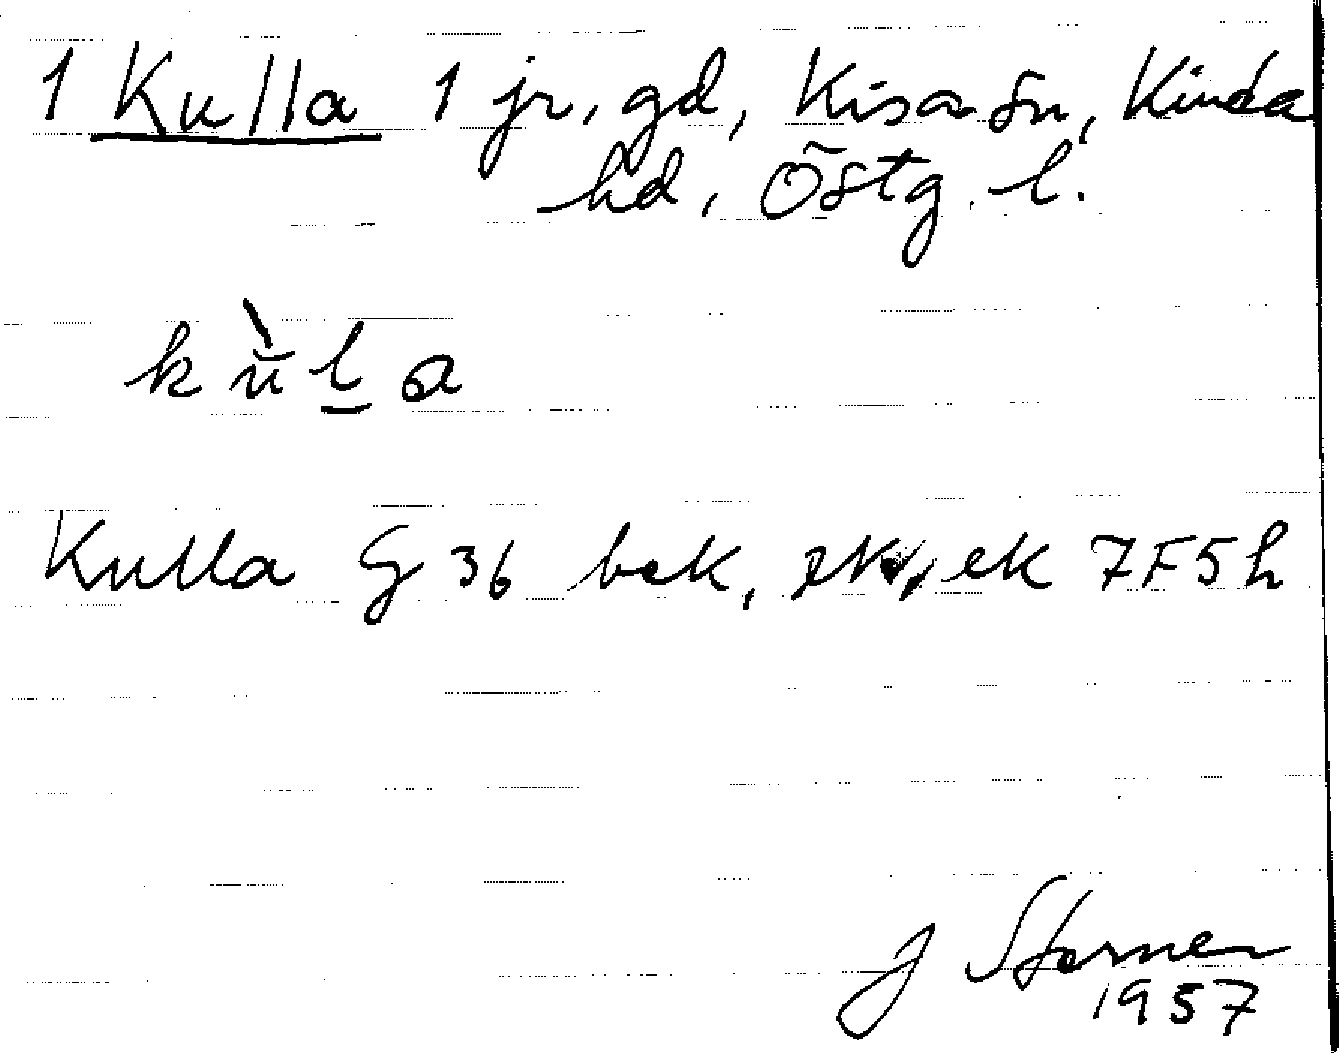 1 Kulla 1 jr, gd, Kisa sn, Kinda
hd, Östg. l.
kùla
Kulla G 36 bek, ek 7F5h
J Sterner
1957